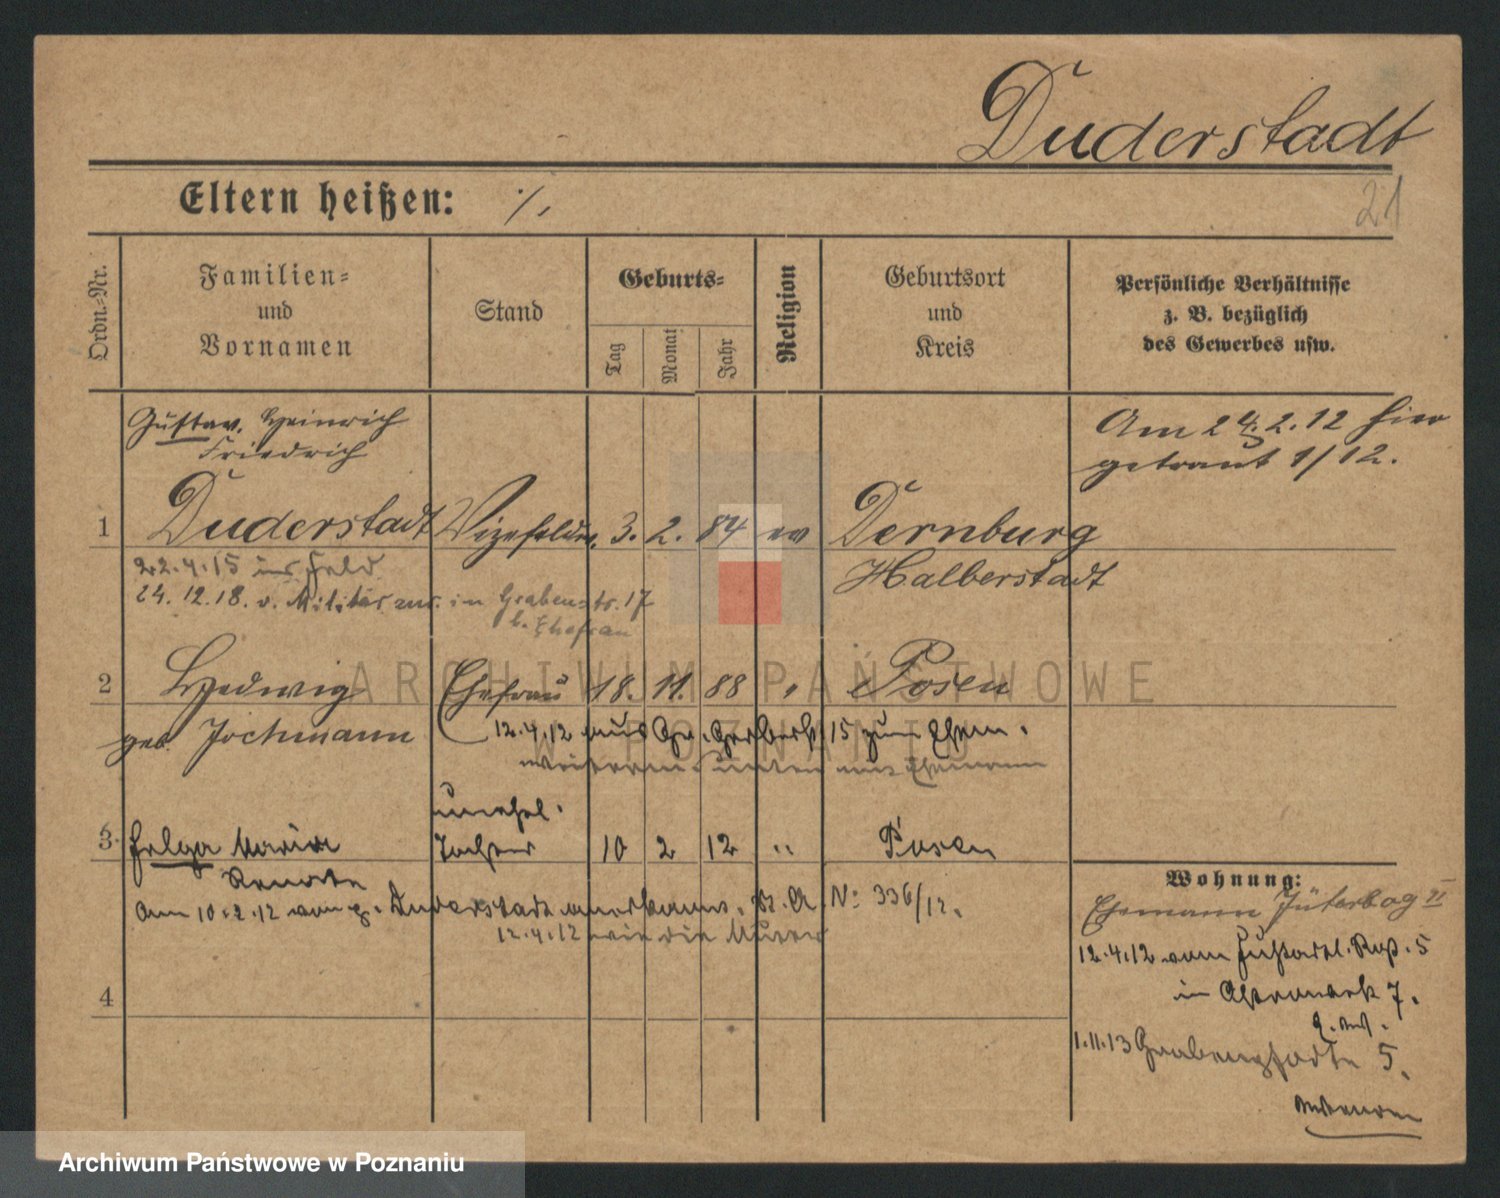 Duderstadt
Eltern heißen: ./.
21
Ordn.-Nr.
Familien-
und
Vornamen
Stand
Geburts-
Tag
Monat
Jahr
Religion
Geburtsort
und
Kreis
Persönliche Verhältnisse
z. B. bezüglich
des Gewerbes usw.
Gustav, Heinrich
Friedrich
Am 24.2.12 hier
getraut 1/12.
1 Duderstadt Vizefeldw. 3. 2. 84 ev Dernburg
Halberstadt
22.4.15 ins Feld
24.12.18. v. Militär zur. in Grabenstr. 17
b. Ehefrau
2 Hedwig Ehefrau 18. 11. 88 " Posen
geb. Jochmann
12.4.12 aus Gr. Gerberstr. 15 zum Ehem.
unten mit Ehemann
unehel.
3. Helga Maria Tochter 10 2 12 " Posen
Renate
Am 10.2.12 vom p. Duderstadt anerkannt. St. A. No 336/12.
12.4.12 wie die Mutter
4
Wohnung:
Ehemann Jüterbog II
12.4.12 vom Fußartl. Rgt. 5
in 7.
1.11.13 5.
ARCHIWUM PAŃSTWOWE
W POZNANIU
Archiwum Państwowe w Poznaniu